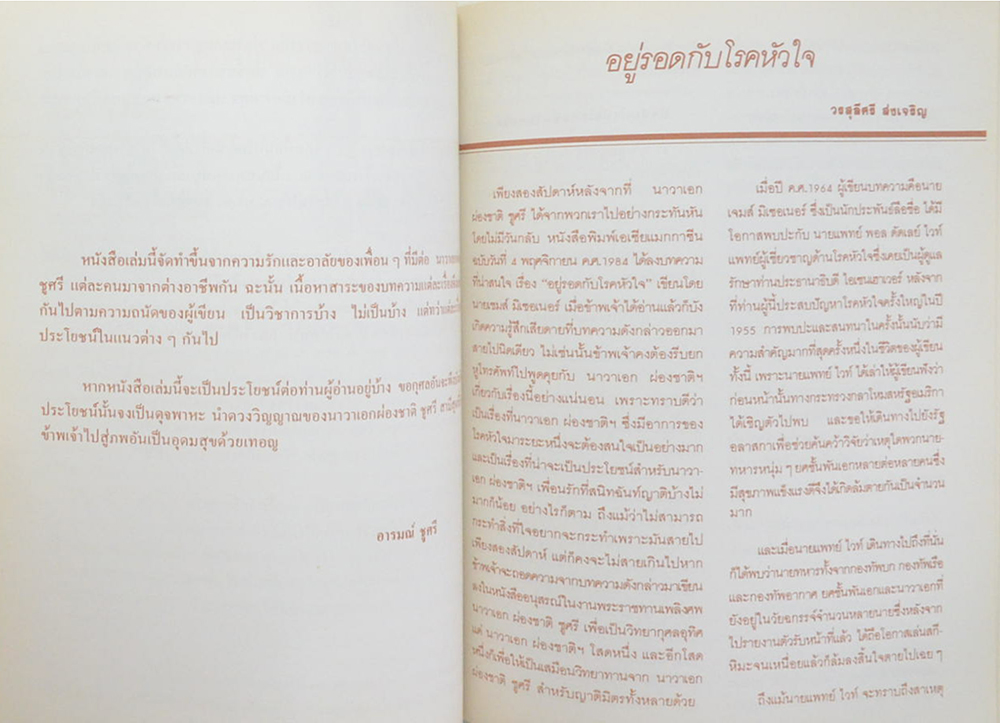 หนังสือเล่มนี้จัดทำขึ้นจากความรักและอาลัยของเพื่อน ๆ ที่มีต่อ
ชูศรี แต่ละคนมาจากต่างอาชีพกัน ฉะนั้น เนื้อหาสาระของบทความแต่ละเรื่อง
กันไปตามความถนัดของผู้เขียน เป็นวิชาการบ้าง ไม่เป็นบ้าง แต่ทว่า
ประโยชน์ในแนวต่าง ๆ กันไป
หากหนังสือเล่มนี้จะเป็นประโยชน์ต่อท่านผู้อ่านอยู่บ้าง ขอกุศลอันจะพึง
ประโยชน์นั้นจงเป็นดุจพาหะ นำดวงวิญญาณของนาวาเอกผ่องชาติ ชูศรี
ข้าพเจ้าไปสู่ภพอันเป็นอุดมสุขด้วยเทอญ
อารมณ์ ชูศรี
อยู่รอดกับโรคหัวใจ
วรสุลีศรี ส่งเจริญ
เพียงสองสัปดาห์หลังจากที่ นาวาเอก
ผ่องชาติ ชูศรี ได้จากพวกเราไปอย่างกระทันหัน
โดยไม่มีวันกลับ หนังสือพิมพ์เอเชียแมกกาซีน
ฉบับวันที่ 4 พฤศจิกายน ค.ศ.1984 ได้ลงบทความ
ที่น่าสนใจ เรื่อง "อยู่รอดกับโรคหัวใจ" เขียนโดย
นายเจมส์ มิเชอเนอร์ เมื่อข้าพเจ้าได้อ่านแล้วก็บัง
เกิดความรู้สึกเสียดายที่บทความดังกล่าวออกมา
สายไปนิดเดียว ไม่เช่นนั้นข้าพเจ้าคงต้องรีบยก
หูโทรศัพท์ไปพูดคุยกับ นาวาเอก ผ่องชาติฯ
เกี่ยวกับเรื่องนี้อย่างแน่นอน เพราะทราบดีว่า
เป็นเรื่องที่นาวาเอก ผ่องชาติฯ ซึ่งมีอาการของ
โรคหัวใจมาระยะหนึ่งจะต้องสนใจเป็นอย่างมาก
และเป็นเรื่องที่น่าจะเป็นประโยชน์สำหรับนาวา-
เอก ผ่องชาติฯ เพื่อนรักที่สนิทฉันท์ญาติบ้างไม่
มากก็น้อย อย่างไรก็ตาม ถึงแม้ว่าไม่สามารถ
กระทำสิ่งที่ใจอยากจะกระทำเพราะมันสายไป
เพียงสองสัปดาห์ แต่ก็คงจะไม่สายเกินไปหาก
ข้าพเจ้าจะถอดความจากบทความดังกล่าวมาเขียน
ลงในหนังสืออนุสรณ์ในงานพระราชทานเพลิงศพ
นาวาเอก ผ่องชาติ ชูศรี เพื่อเป็นวิทยากุศลอุทิศ
แด่ นาวาเอก ผ่องชาติฯ โสดหนึ่ง และอีกโสด
หนึ่งก็เพื่อให้เป็นเสมือนวิทยาทานจาก นาวาเอก
ผ่องชาติ ชูศรี สำหรับญาติมิตรทั้งหลายด้วย
เมื่อปี ค.ศ.1964 ผู้เขียนบทความคือนาย
เจมส์ มิเชอเนอร์ ซึ่งเป็นนักประพันธ์ลือชื่อ ได้มี
โอกาสพบปะกับ นายแพทย์ พอล ดัดเลย์ ไวท์
แพทย์ผู้เชี่ยวชาญด้านโรคหัวใจซึ่งเคยเป็นผู้ดูแล
รักษาท่านประธานาธิบดี ไอเซนเฮาเวอร์ หลังจาก
ที่ท่านผู้นี้ประสบปัญหาโรคหัวใจครั้งใหญ่ในปี
1955 การพบปะและสนทนาในครั้งนั้นนับว่ามี
ความสำคัญมากที่สุดครั้งหนึ่งในชีวิตของผู้เขียน
ทั้งนี้ เพราะนายแพทย์ ไวท์ ได้เล่าให้ผู้เขียนฟังว่า
ก่อนหน้านั้นทางกระทรวงกลาโหมสหรัฐอเมริกา
ได้เชิญตัวไปพบ และขอให้เดินทางไปยังรัฐ
อลาสกาเพื่อช่วยค้นคว้าวิจัยว่าเหตุใดพวกนาย-
ทหารหนุ่ม ๆ ยศชั้นพันเอกหลายต่อหลายคนซึ่ง
มีสุขภาพแข็งแรงดีจึงได้เกิดล้มตายกันเป็นจำนวน
มาก
และเมื่อนายแพทย์ ไวท์ เดินทางไปถึงที่นั่น
ก็ได้พบว่านายทหารทั้งจากกองทัพบก กองทัพเรือ
และกองทัพอากาศ ยศชั้นพันเอกและนาวาเอกที่
ยังอยู่ในวัยฉกรรจ์จำนวนหลายนายซึ่งหลังจาก
ไปรายงานตัวรับหน้าที่แล้ว ได้ถือโอกาสเล่นสกี-
หิมะจนเหนื่อยแล้วก็ล้มลงสิ้นใจตายไปเฉย ๆ
ถึงแม้นายแพทย์ ไวท์ จะทราบถึงสาเหตุ